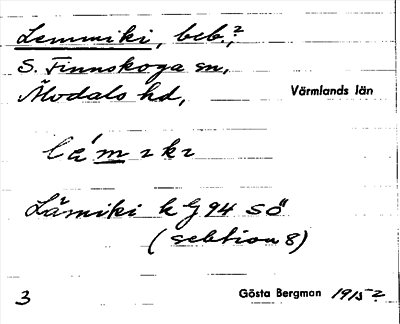 Lemmiki, beb.?,
S. Finnskoga sn,
Älvdals hd,
Värmlands län
lá m ɪ kɪ
Lämiki k G 94 SÖ
(sektion 8)
3
Gösta Bergman 1915?